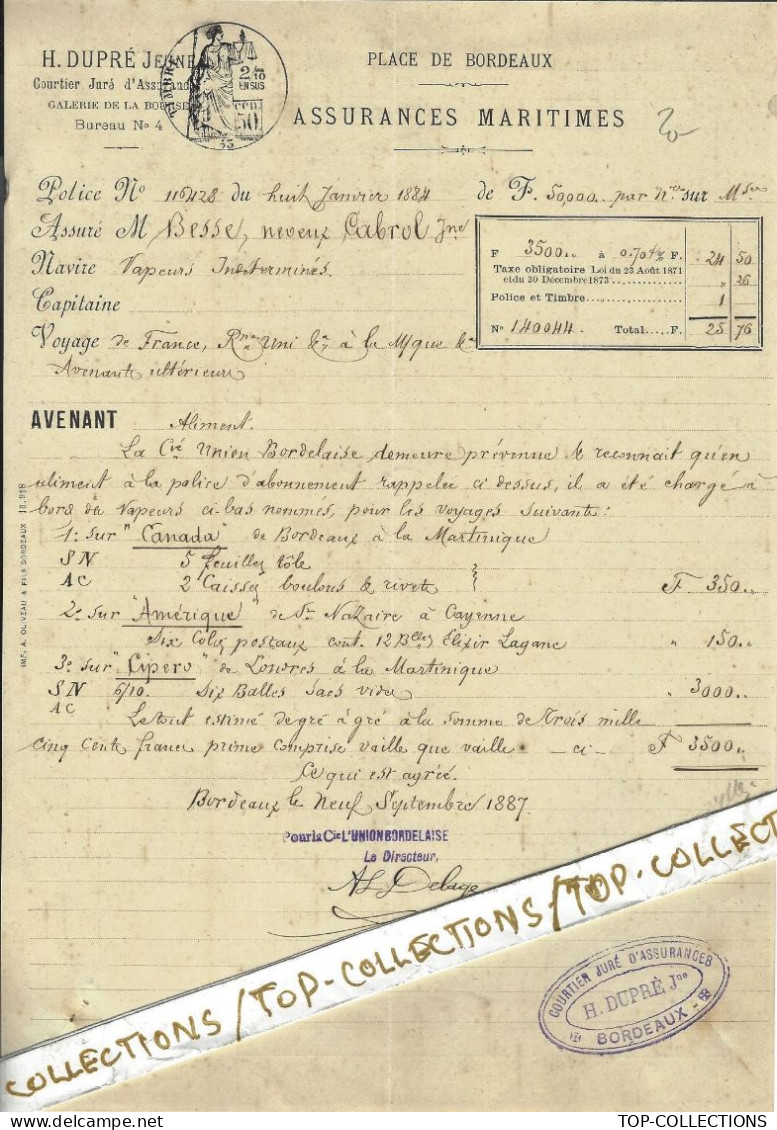 H. DUPRÉ JEUNE
Courtier Juré d'Assuranc
GALERIE DE LA BOURSE
Bureau No 4
TIMBRE
2/10
EN SUS
CEN
50
33
PLACE DE BORDEAUX
ASSURANCES MARITIMES
Police No 116428 du huit Janvier 1884 de F. 50,000 par nre sur Mses
Assuré M Besse, neveux Cabrol Jne
Navire Vapeurs Indéterminés.
Capitaine
Voyage de France, Rme Uni &a à la Mque &a
Avenants ultérieurs
F 3500.. à 0.70 % F. 24 50
Taxe obligatoire Loi du 23 Août 1871
et du 30 Décembre 1873 " 26
Police et Timbre 1
No 140044. Total.....F. 25 76
AVENANT Aliment.
La Cie Union Bordelaise demeure prévenue & reconnait qu'en
aliment à la police d'abonnement rappelée ci dessus, il a été chargé à
bord des Vapeurs ci-bas nommés, pour les voyages suivants:
1: sur "Canada" de Bordeaux à la Martinique
SN 5 feuilles tôle
AC 2 Caisses boulons & rivets F 350..
2o sur "Amérique" de St Nazaire à Cayenne
Six Colis postaux cont. 12 Blles Elixir Lagane " 150..
3o sur "Cipero" de Londres à la Martinique
SN 6/10. Six Balles sacs vides " 3000..
AC
Le tout estimé de gré à gré à la somme de Trois mille
cinq cents francs prime comprise vaille que vaille. - ci - F 3500..
Ce qui est agréé.
Bordeaux le Neuf Septembre 1887.
Pour la Cie L'UNION BORDELAISE
Le Directeur,
Delage
IMP. A. OLIVEAU & FILS BORDEAUX 10,918
COURTIER JURÉ D'ASSURANCES
H. DUPRÉ Jne
BORDEAUX
COLLECTIONS / TOP-COLLECTIONS / TOP-COLLECT
TOP-COLLECTIONS